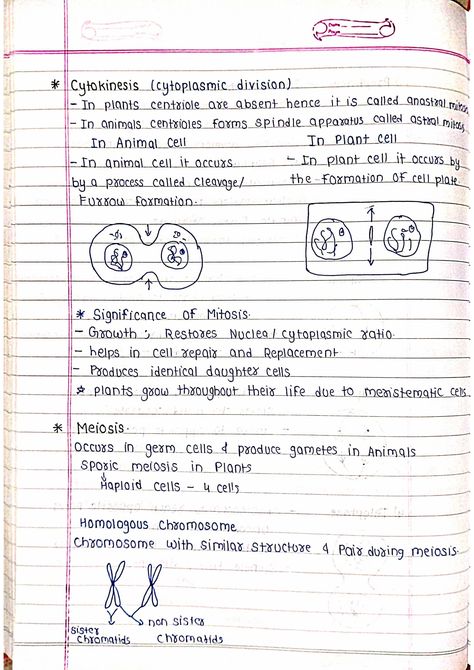 Date
Page
* Cytokinesis (cytoplasmic division)
- In plants centriole are absent hence it is called anastral mitosis
- In animals centrioles forms spindle apparatus called astral mitosis
In Animal cell
In Plant cell
- In animal cell it occurs
by a process called Cleavage/
Furrow formation.
- In plant cell it occurs by
the formation of cell plate.
* Significance of Mitosis.
- Growth ; Restores Nuclea/cytoplasmic ratio.
- helps in cell repair and Replacement
- Produces identical daughter cells
* plants grow throughout their life due to meristematic cells.
* Meiosis.
Occurs in germ cells & produce gametes in Animals
Sporic meiosis in Plants
Haploid cells - 4 cells
Homologous Chromosome
Chromosome with similar structure & Pair during meiosis.
non sister
chromatids
sister
chromatids